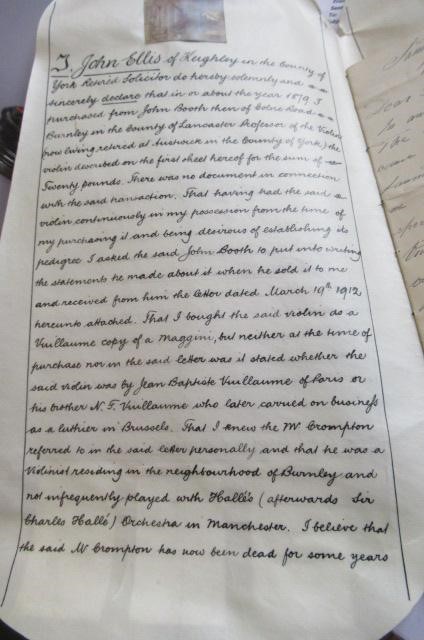 I, John Ellis of Hughley in the County of
York Retired Solicitor do hereby solemnly and
sincerely declare that in or about the year 1879 I
purchased from John Booth then of Colne Road
Burnley in the County of Lancaster Professor of the Violin
(now living retired at Austwick in the County of York) the
violin described on the first sheet hereof for the sum of
Twenty pounds. There was no document in connection
with the said transaction. That having had the said
violin continuously in my possession from the time of
my purchasing it and being desirous of establishing its
pedigree I asked the said John Booth to put into writing
the statements he made about it when he sold it to me
and received from him the letter dated March 19th 1912
hereunto attached. That I bought the said violin as a
Vuillaume copy of a Maggini, but neither at the time of
purchase nor in the said letter was it stated whether the
said violin was by Jean Baptiste Vuillaume of Paris or
his brother N. F. Vuillaume who later carried on business
as a luthier in Brussels. That I knew the Mr Crompton
referred to in the said letter personally and that he was a
Violinist residing in the neighbourhood of Burnley and
not infrequently played with Hallé's (afterwards Sir
Charles Hallé) Orchestra in Manchester. I believe that
the said Mr Crompton has now been dead for some years
Dear